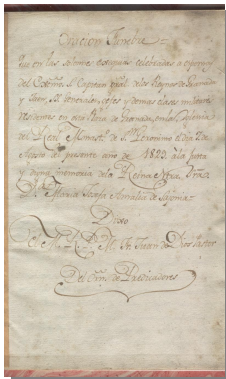 Oracion Funebre
Que en las solemnes exequias celebradas a expensas
del Exmo. S. Capitan Gral. de los Reynos de Granada
y Jaen, M. Generales, Gefes y demas clases militares
residentes en esta Plaza de Granada, en la Iglesia
del Real Monast.º de S.n Geronimo el dia 2 de
del presente año de 1829. a la grata
y digna memoria de la Reina Ntra. Sra.
D.ª Maria Josefa Amalia de Sajonia
Dixo
El M. R. P. M. Fr. Juan de Dios
Del Orn. de Predicadores